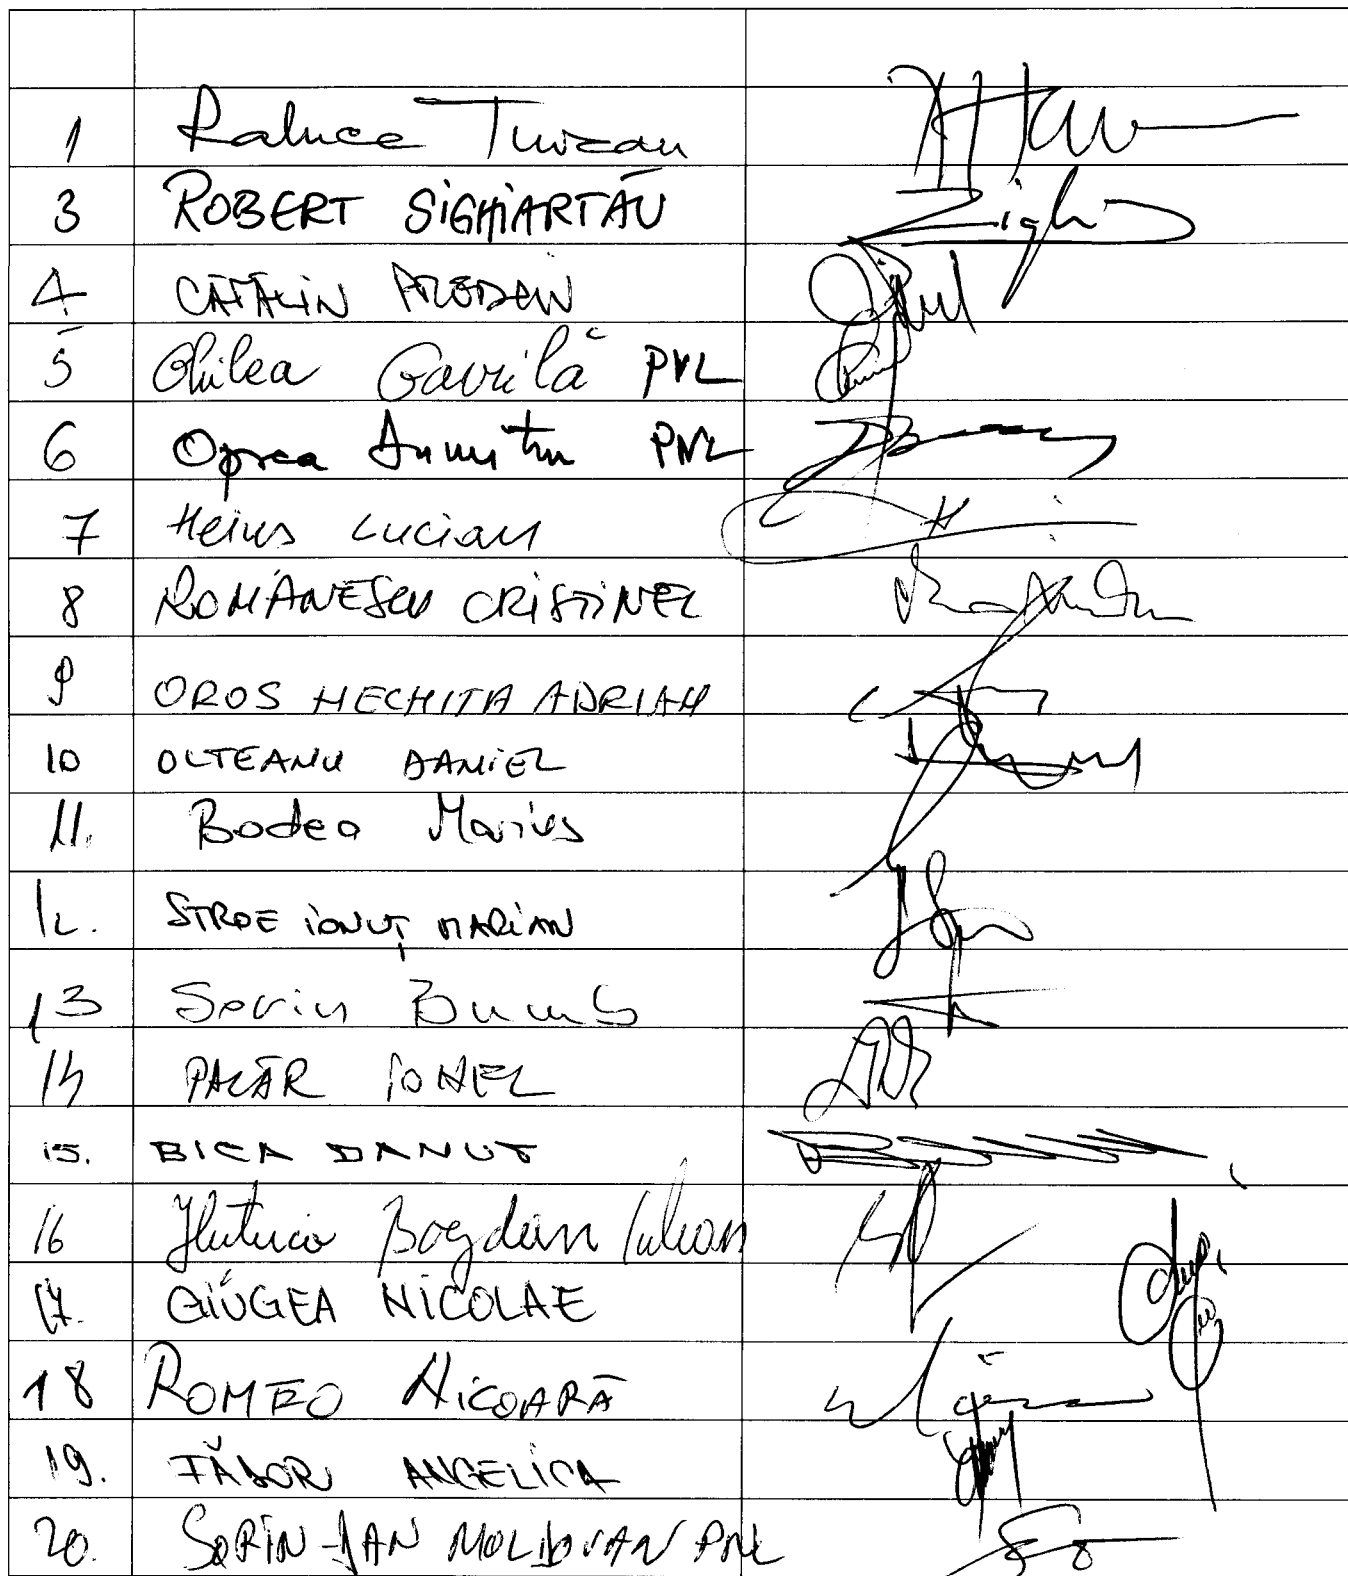 1 Raluca Turcan
3 ROBERT SIGHIARTĂU
4 CĂTĂLIN PREDOIU
5 Ghilea Gavrilă PNL
6 Oprea Dumitru PNL
7 Heius Lucian
8 ROMANESCU CRISTINEL
9 OROS NECHITA ADRIAN
10 OLTEANU DANIEL
11. Bodea Marius
12. STROE IONUȚ MARIAN
13 Sorin Bumb
14 PALĂR IONEL
15. BICA DANUT
16 Hutuca Bogdan Iulian
17. GIUGEA NICOLAE
18 ROMEO NICOARĂ
19. FĂDOR ANGELICA
20. SORIN-DAN MOLDOVAN PNL